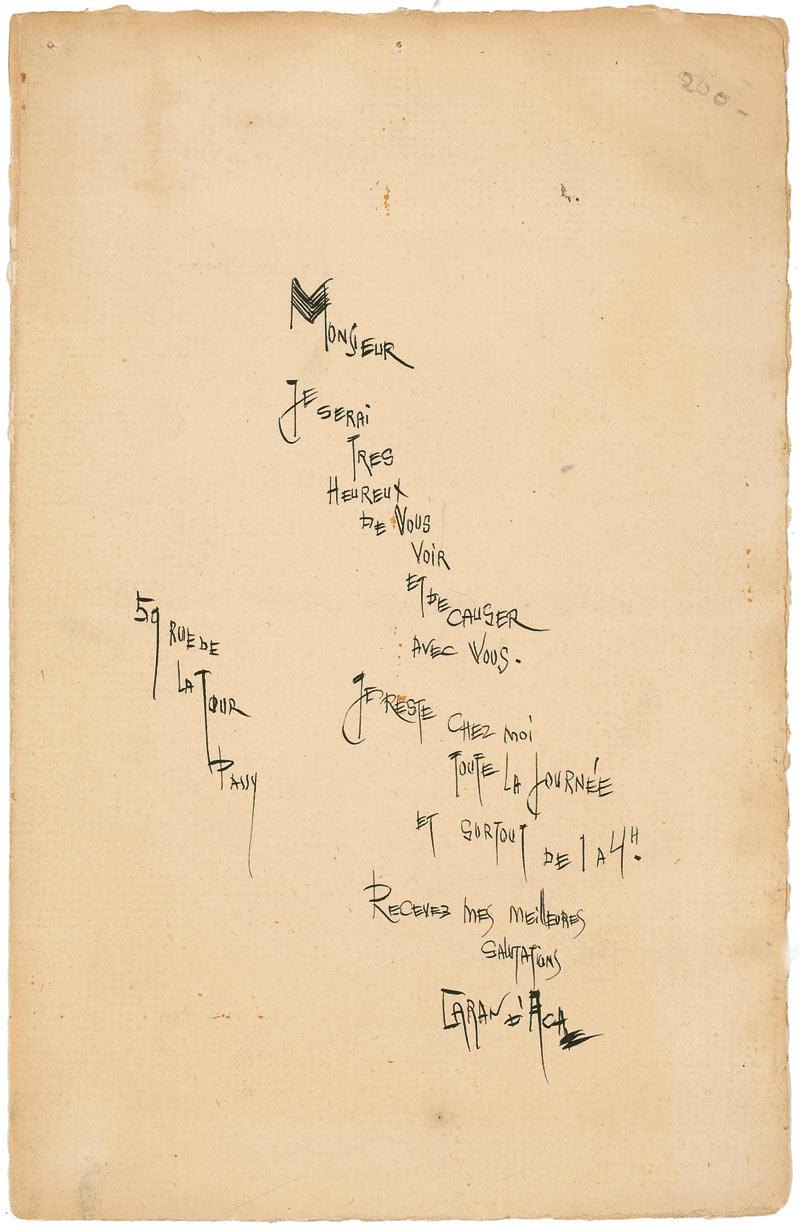 250-
Monsieur
Je serai
tres
Heureux
de vous
voir
et de causer
avec vous.
Je reste chez moi
toute la journée
et surtout de 1 a 4H.
Recevez mes meilleures
salutations
Caran d'Ache
59 rue de
la Tour
Passy